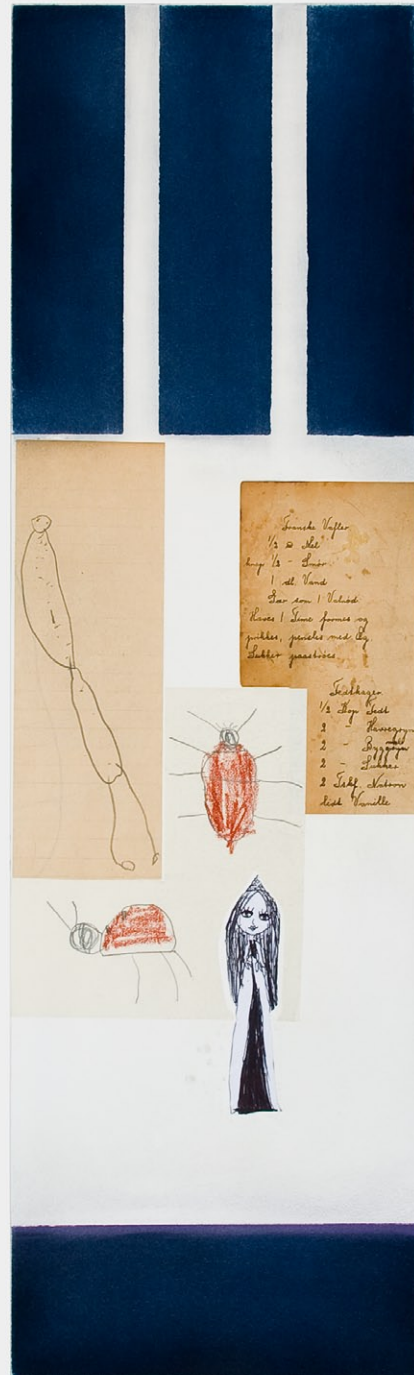 Franske Vafler
1/2 ℔ Mel
knap 1/2 - Smør
1 dl. Vand
Gær som 1 Valnød
Haves 1 Time formes og
prikkes, pensles med Eg
Sukker paastrøes.
Fedtkager
1/2 Kop Fedt
2 - Havregryn
2 - Bygmel
2 - Sukker
2 Tskf. Natron
lidt Vanille